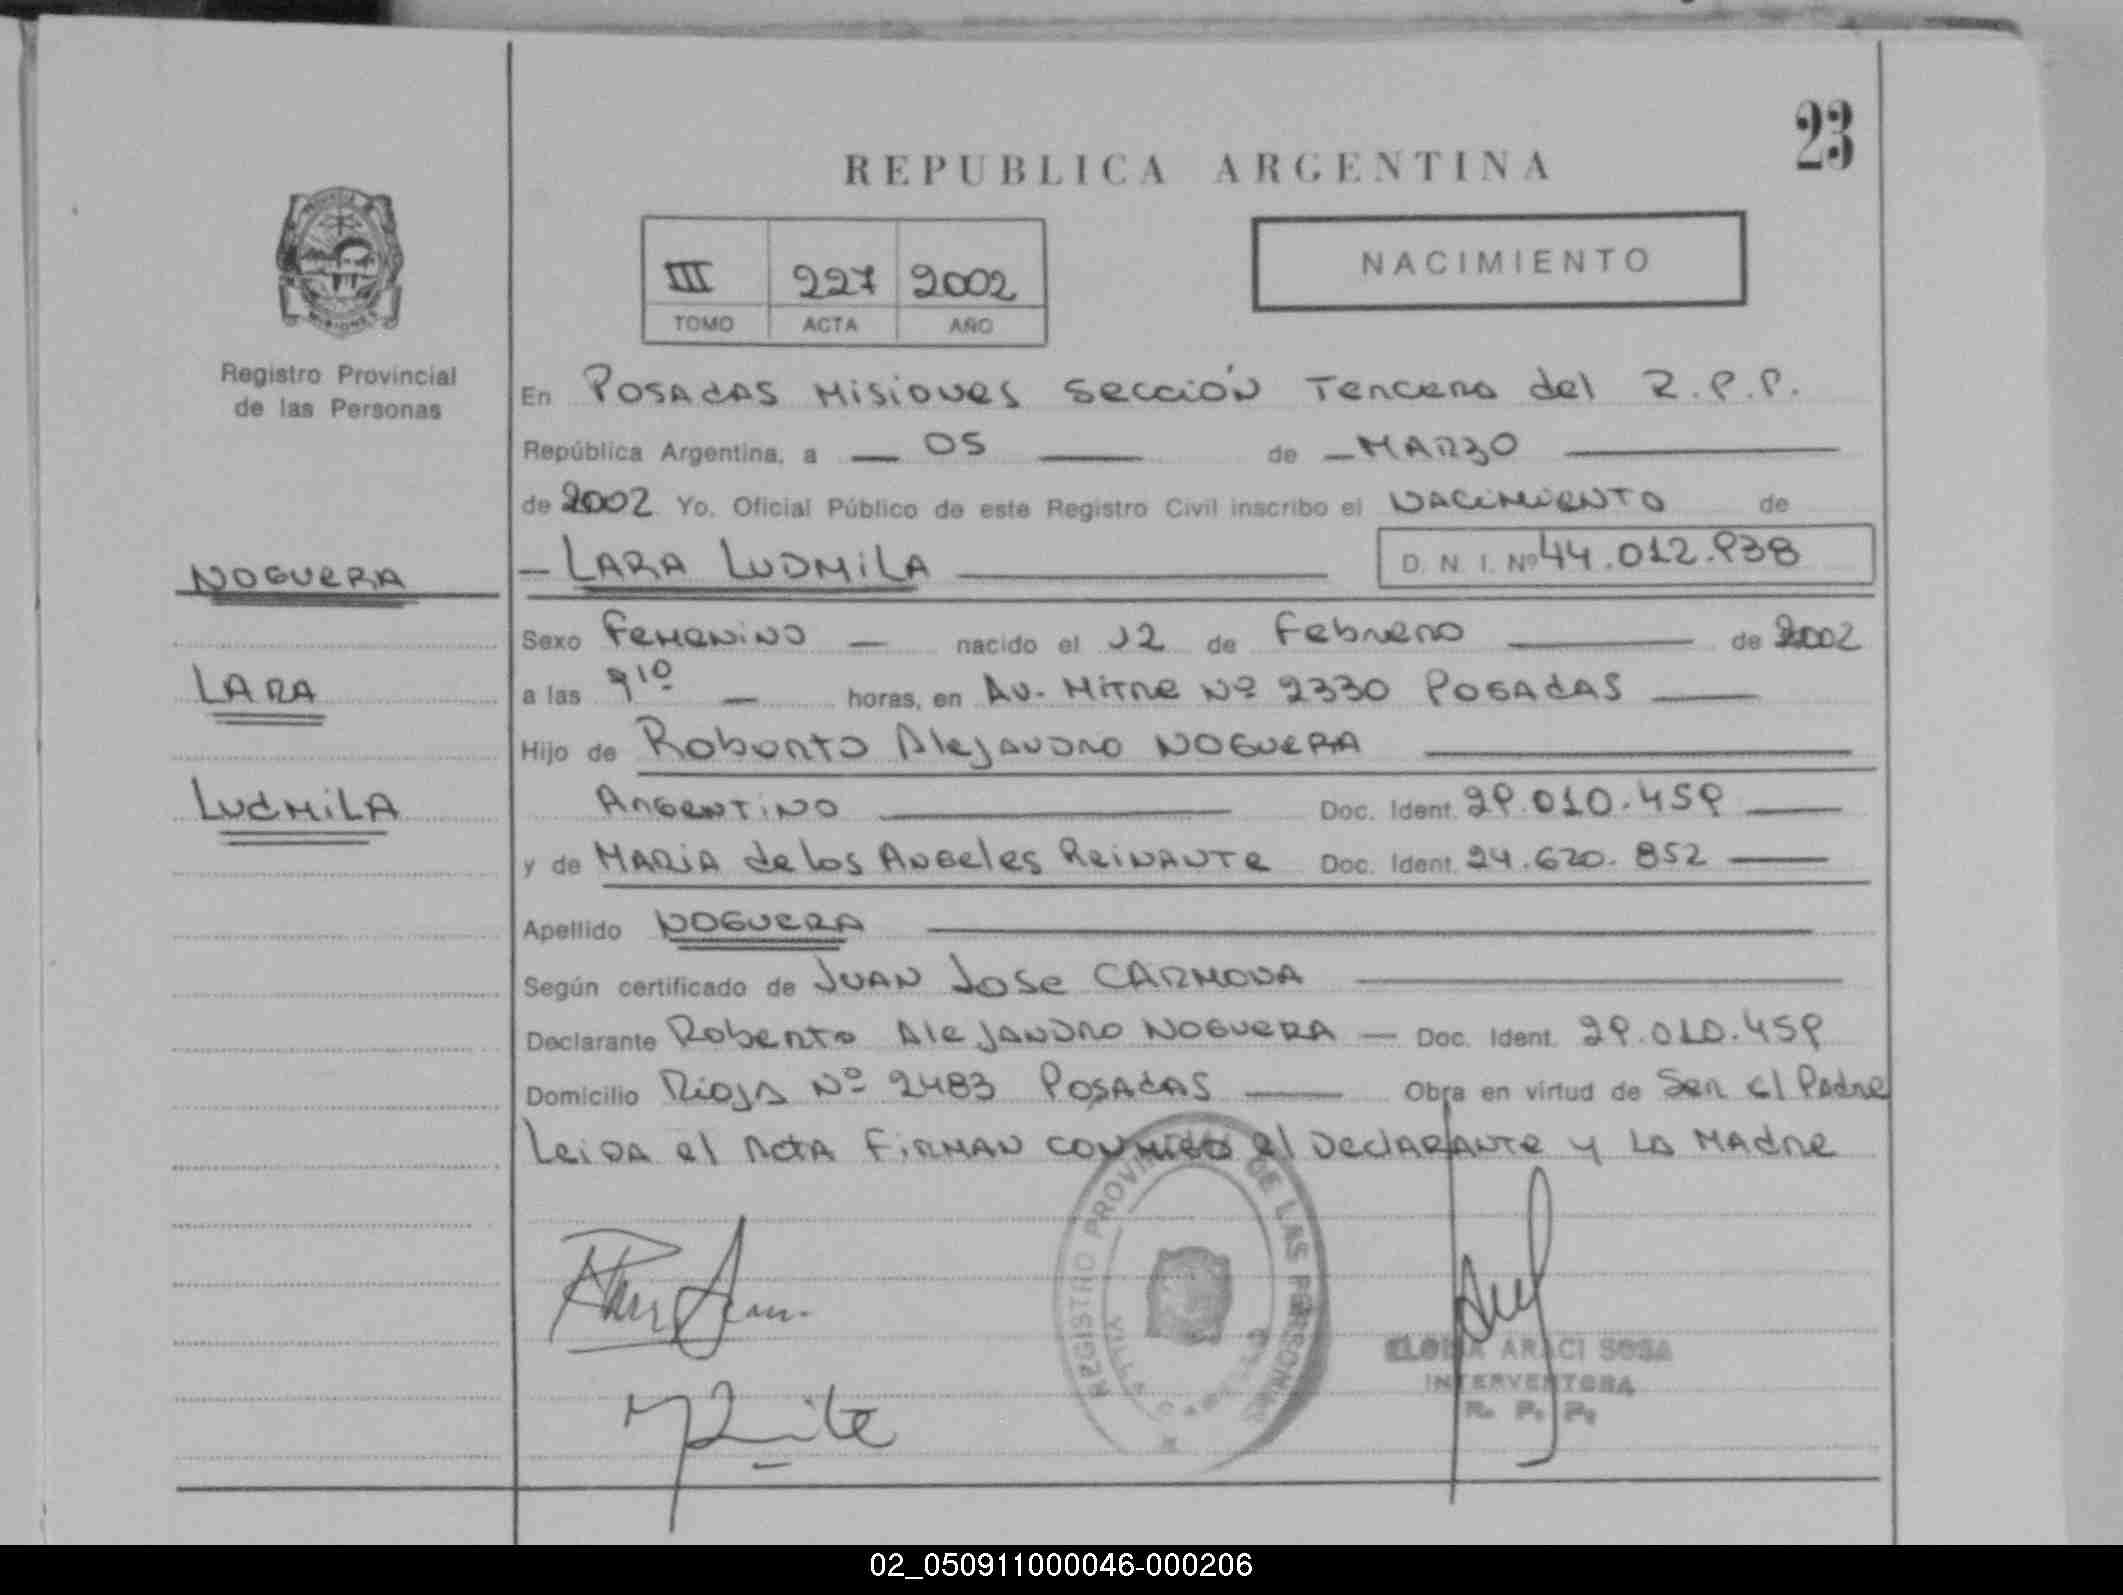 23
REPUBLICA ARGENTINA
NACIMIENTO
III 227 2002
TOMO ACTA AÑO
MISIONES
Registro Provincial
de las Personas
En Posadas Misiones Sección Tercera del R.P.P.
República Argentina, a — 05 — de — MARZO —
de 2002 Yo, Oficial Público de este Registro Civil inscribo el NACIMIENTO de
— LARA LUDMILA — D. N. I. Nº 44.012.938
NOGUERA
LARA
LUDMILA
Sexo Femenino — nacido el 12 de Febrero — de 2002
a las 9:10 — horas, en Av. Mitre Nº 2330 POSADAS —
Hijo de Roberto Alejandro NOGUERA —
Argentino — Doc. Ident. 29.010.459 —
y de MARIA de los Angeles Reinante Doc. Ident. 24.620.852 —
Apellido NOGUERA —
Según certificado de JUAN Jose CARMONA —
Declarante Roberto Alejandro NOGUERA — Doc. Ident. 29.010.459
Domicilio Rioja Nº 2483 POSADAS — Obra en virtud de Ser el Padre
Leida el Acta Firman conmigo el Declarante y la Madre
REGISTRO PROVINCIAL DE LAS PERSONAS
VILLA
ARACI SOSA
INTERVENTORA
R. P. P.
02_050911000046-000206